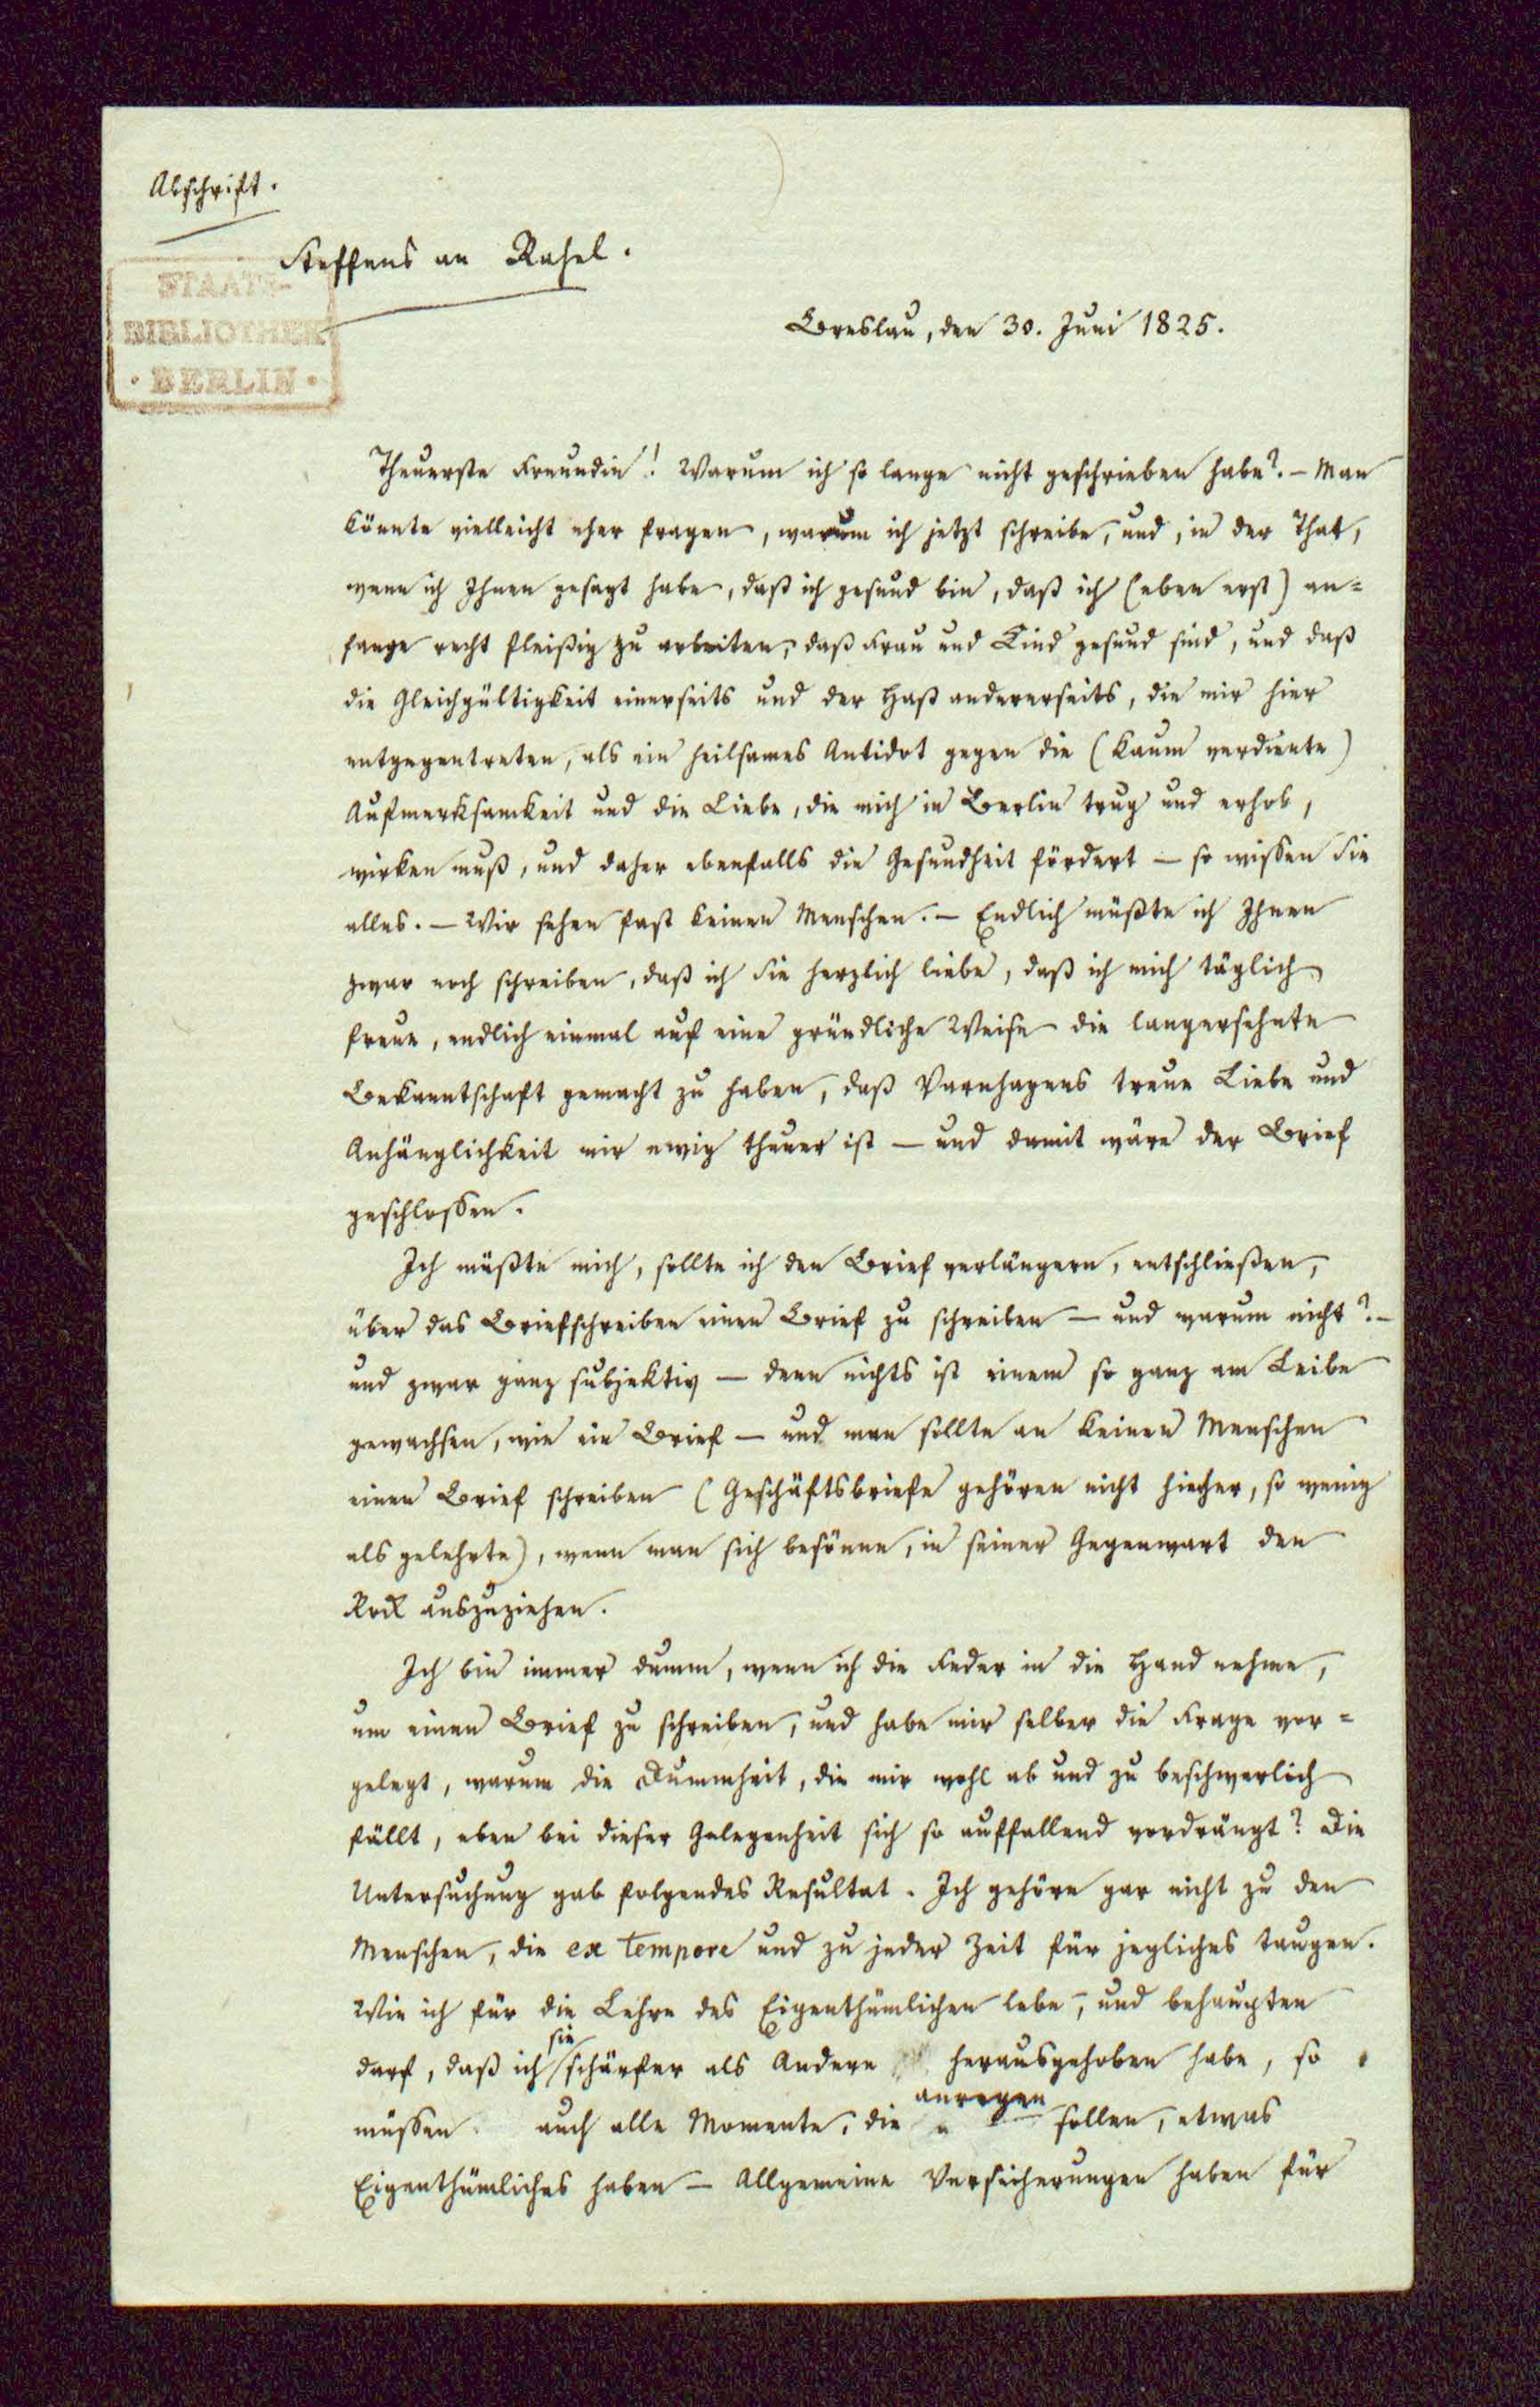 Abschrift.
Steffens an Rahel.
STAATS-
BIBLIOTHEK
· BERLIN ·
Breslau, den 30. Juni 1825.
Theuerste Freundin! Warum ich so lange nicht geschrieben habe? – Man
könnte vielleicht eher fragen, warum ich jetzt schreibe, und, in der That,
wenn ich Ihnen gesagt habe, daß ich gesund bin, daß ich (eben erst) an=
fange recht fleißig zu arbeiten, daß Frau und Kind gesund sind, und daß
die Gleichgültigkeit einerseits und der Haß andererseits, die mir hier
entgegentreten, als ein heilsames Antidot gegen die (kaum verdiente)
Aufmerksamkeit und die Liebe, die mich in Berlin trug und erhob,
wirken muß, und daher ebenfalls die Gesundheit fördert – so wissen Sie
alles. – Wir sehen fast keinen Menschen. – Endlich müßte ich Ihnen
zwar noch schreiben, daß ich Sie herzlich liebe, daß ich mich täglich
freue, endlich einmal auf eine gründliche Weise die langersehnte
Bekanntschaft gemacht zu haben, daß Varnhagens treue Liebe und
Anhänglichkeit mir ewig theuer ist – und damit wäre der Brief
geschlossen.
Ich müßte mich, sollte ich den Brief verlängern, entschließen,
über das Briefschreiben einen Brief zu schreiben – und warum nicht? –
und zwar ganz subjektiv – denn nichts ist einem so ganz am Leibe
gewachsen, wie ein Brief – und man sollte an keinen Menschen
einen Brief schreiben (Geschäftsbriefe gehören nicht hierher, so wenig
als gelehrte), wenn man sich besönne, in seiner Gegenwart den
Rock auszuziehen.
Ich bin immer dumm, wenn ich die Feder in die Hand nehme,
um einen Brief zu schreiben, und habe mir selber die Frage vor=
gelegt, warum die Dummheit, die mir wohl ab und zu beschwerlich
fällt, eben bei dieser Gelegenheit sich so auffallend vordrängt? Die
Untersuchung gab folgendes Resultat. Ich gehöre gar nicht zu den
Menschen, die ex tempore und zu jeder Zeit für jegliches taugen.
Wie ich für die Lehre des Eigenthümlichen lebe, und behaupten
darf, daß ich sie schärfer als Andere herausgehoben habe, so
müssen auch alle Momente, die anregen sollen, etwas
Eigenthümliches haben – Allgemeine Versicherungen haben für